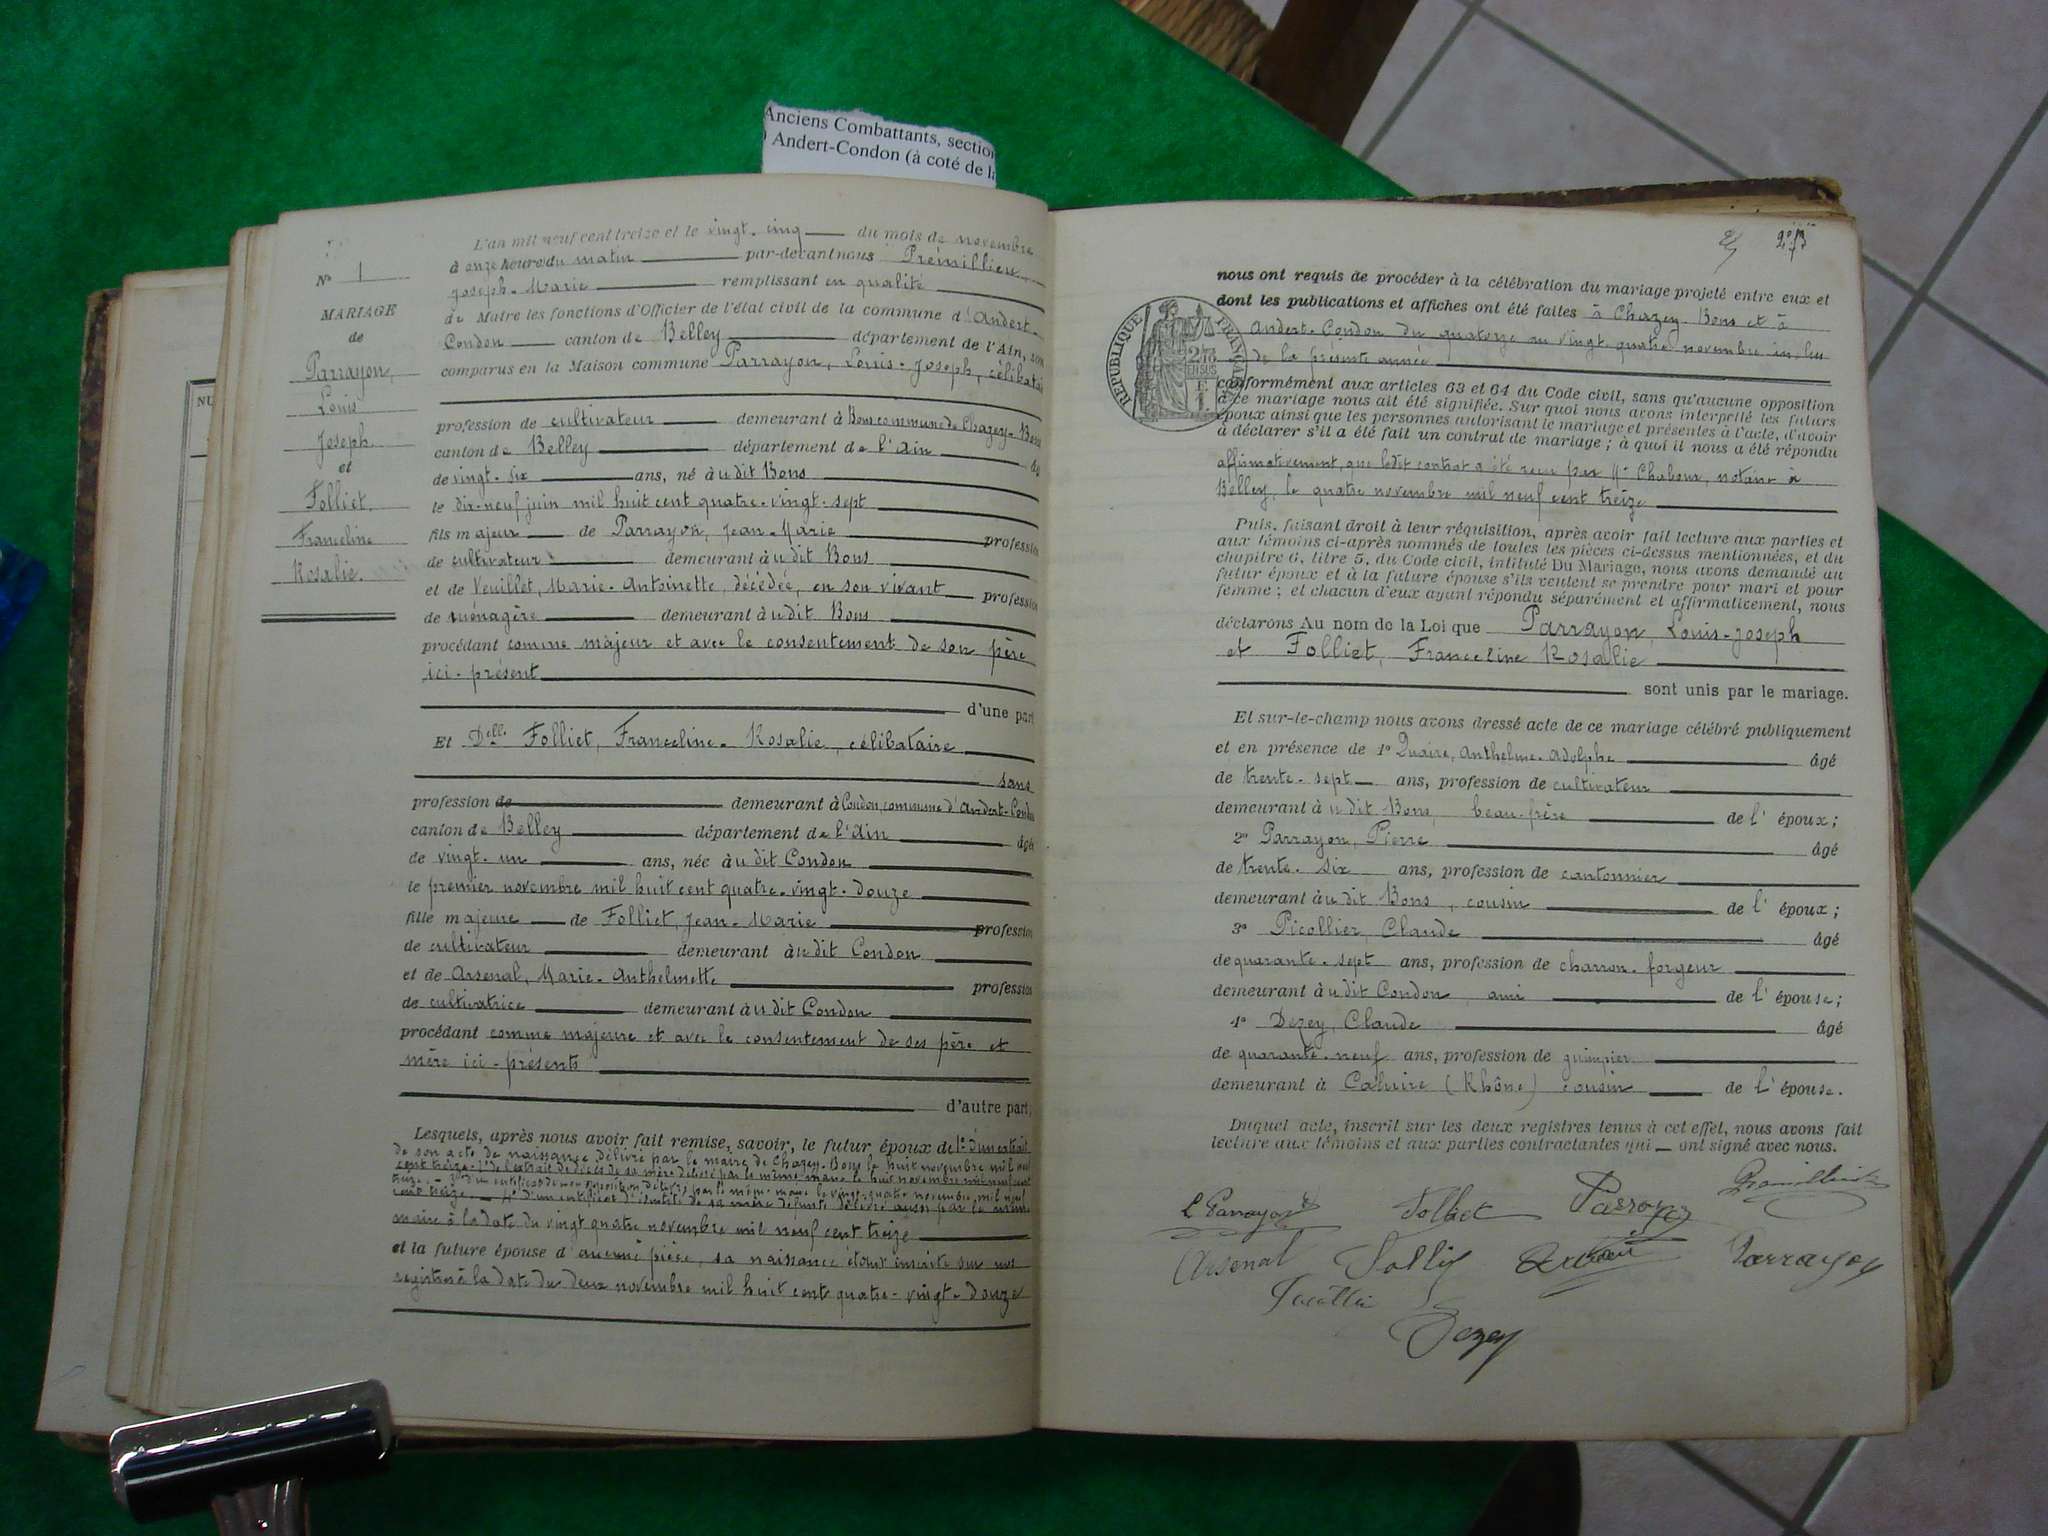 Anciens Combattants, section
Andert-Condon (à coté de la
N° 1
MARIAGE
de
Parrayon,
Louis
Joseph
et
Folliet.
Franceline
Rosalie.
L'an mil neuf cent treize et le vingt-cinq du mois de novembre
à onze heure du matin par-devant nous Prémillieu
Joseph-Marie remplissant en qualité
de Maire les fonctions d'Officier de l'état civil de la commune d'Andert-
Condon canton de Belley département de l'Ain, sont
comparus en la Maison commune Parrayon, Louis-Joseph, célibataire
profession de cultivateur demeurant à Bons commune de Chazey-Bons
canton de Belley département de l'Ain âgé
de vingt-six ans, né à udit Bons
le dix-neuf juin mil huit cent quatre-vingt-sept
fils majeur de Parrayon, Jean-Marie profession
de cultivateur demeurant à udit Bons
et de Veuillet, Marie-Antoinette, décédée, en son vivant profession
de ménagère demeurant à udit Bons
procédant comme majeur et avec le consentement de son père
ici-présent
d'une part
Et Delle Folliet, Franceline-Rosalie, célibataire
sans
profession de demeurant à Condon, commune d'Andert-Condon
canton de Belley département de l'Ain âgé
de vingt-un ans, née à udit Condon
le premier novembre mil huit cent quatre-vingt-douze
fille majeure de Folliet, Jean-Marie profession
de cultivateur demeurant à udit Condon
et de Arsenal, Marie-Anthelmette profession
de cultivatrice demeurant à udit Condon
procédant comme majeure et avec le consentement de ses père et
mère ici-présents
d'autre part;
Lesquels, après nous avoir fait remise, savoir, le futur époux de 1° d'un extrait
de son acte de naissance délivré par le maire de Chazey-Bons le huit novembre mil neuf
cent treize - 2° de l'extrait de décès de sa mère délivré par le même maire le huit novembre mil neuf cent
treize. - 3° d'un certificat de non opposition délivré par le même maire le vingt-quatre novembre mil neuf
cent treize. - 4° d'un certificat d'identité de sa mère défunte délivré aussi par le même
maire à la date du vingt quatre novembre mil neuf cent treize
et la future épouse d'aucune pièce, sa naissance étant inscrite sur nos
registres à la date du deux novembre mil huit cent quatre-vingt-douze
nous ont requis de procéder à la célébration du mariage projeté entre eux et
dont les publications et affiches ont été faites à Chazey-Bons et à
Andert-Condon du quatorze au vingt-quatre novembre inclus
de la présente année
REPUBLIQUE FRANÇAISE
conformément aux articles 63 et 64 du Code civil, sans qu'aucune opposition
à ce mariage nous ait été signifiée. Sur quoi nous avons interpellé les futurs
époux ainsi que les personnes autorisant le mariage et présentes à l'acte, d'avoir
à déclarer s'il a été fait un contrat de mariage ; à quoi il nous a été répondu
affirmativement, que ledit contrat a été reçu par Me Chaboux, notaire à
Belley, le quatre novembre mil neuf cent treize
Puis, faisant droit à leur réquisition, après avoir fait lecture aux parties et
aux témoins ci-après nommés de toutes les pièces ci-dessus mentionnées, et du
chapitre 6, titre 5, du Code civil, intitulé Du Mariage, nous avons demandé au
futur époux et à la future épouse s'ils veulent se prendre pour mari et pour
femme ; et chacun d'eux ayant répondu séparément et affirmativement, nous
déclarons Au nom de la Loi que Parrayon, Louis-Joseph
et Folliet, Franceline Rosalie
sont unis par le mariage.
Et sur-le-champ nous avons dressé acte de ce mariage célébré publiquement
et en présence de 1° Anthelme-Adolphe âgé
de trente-sept ans, profession de cultivateur
demeurant à udit Bons, beau-frère de l'époux;
2° Parrayon, Pierre âgé
de trente-six ans, profession de cantonnier
demeurant à udit Bons, cousin de l'époux;
3° Picollier, Claude âgé
de quarante-sept ans, profession de charron-forgeur
demeurant à udit Condon, ami de l'épouse;
4° Dezey, Claude âgé
de quarante-neuf ans, profession de guimpier
demeurant à Caluire (Rhône) cousin de l'épouse.
Duquel acte, inscrit sur les deux registres tenus à cet effet, nous avons fait
lecture aux témoins et aux parties contractantes qui ont signé avec nous.
L Parrayon Folliet Parrayon Prémillieu
Arsenal Folliet Parrayon
Dezey